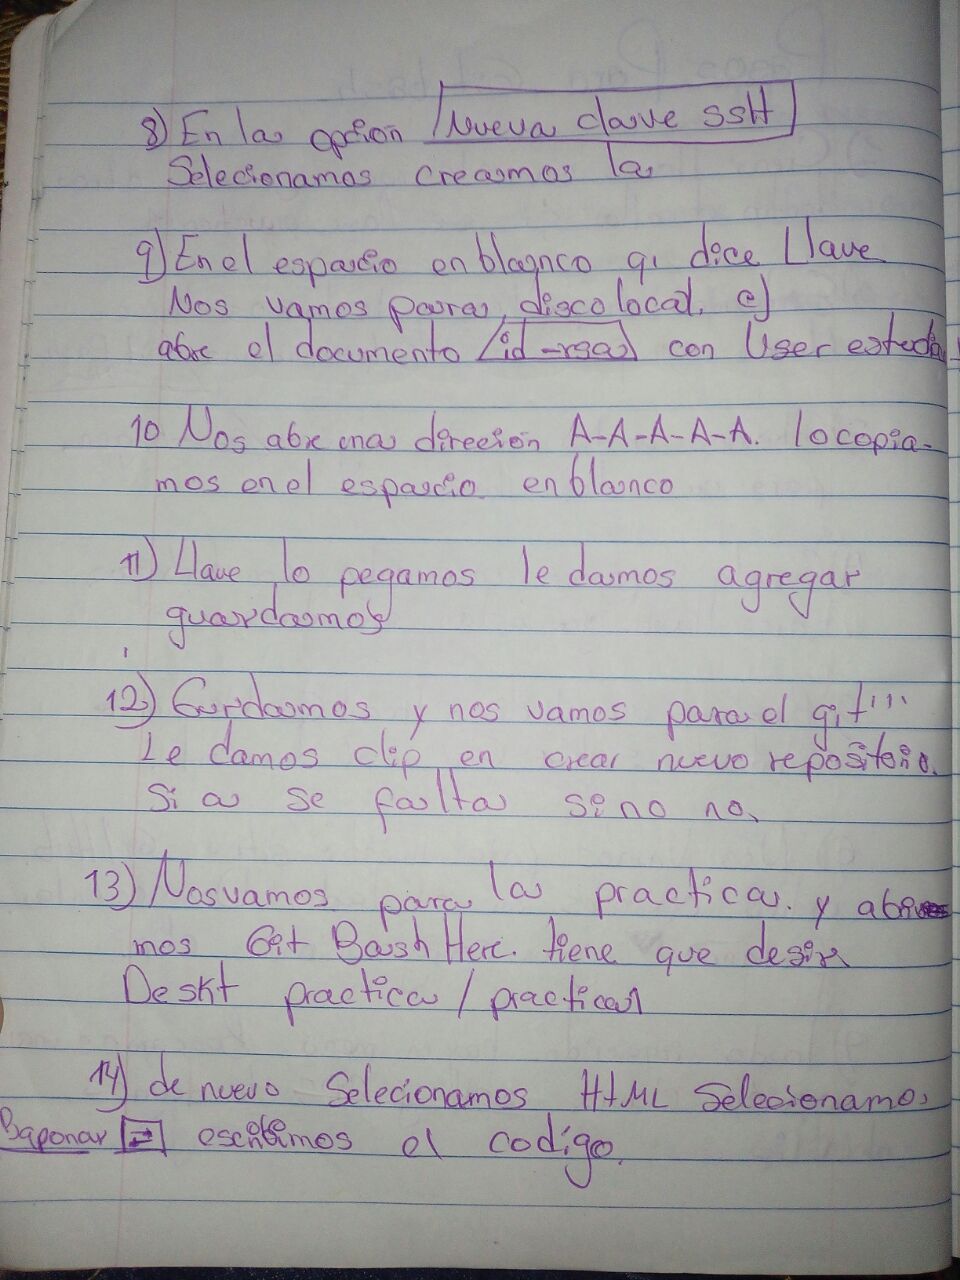 8) En la opción Nueva clave SSH
Selecionamos creamos la
9) En el espacio en blanco q, dice Llave
Nos vamos para disco local. c)
abre el documento id-rsa con User estudia
10 Nos abre una direción A-A-A-A-A. lo copia-
mos en el espacio en blanco
11) Llave lo pegamos le damos agregar
guardamos
12) Gurdamos y nos vamos para el git'''
Le damos clip en crear nuevo repositorio.
Si a se falta si no no.
13) Nos vamos para la practica. y abri
mos Git Bash Here. tiene que desir
Deskt practica / practica1
14) de nuevo Selecionamos HtML Selecionamos
escribimos el codigo.